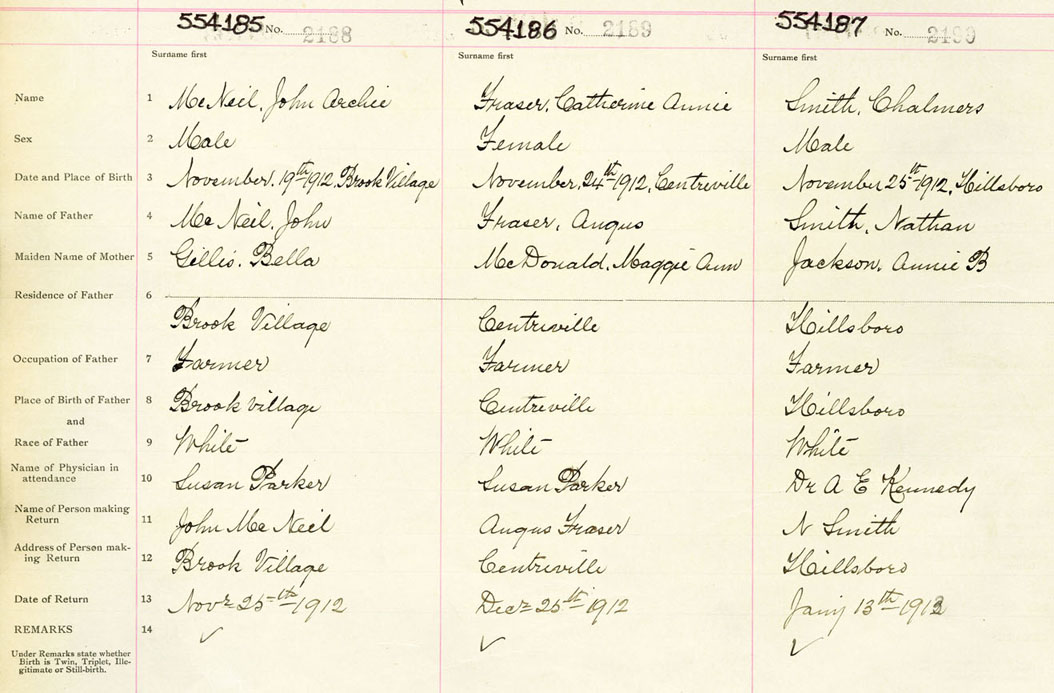 554185 No. 2188 554186 No. 2189 554187 No. 2190
Surname first Surname first Surname first
Name 1 McNeil, John Archie Fraser, Catherine Annie Smith, Chalmers
Sex 2 Male Female Male
Date and Place of Birth 3 November, 19th 1912, Brook Village November, 24th 1912, Centreville November 25th 1912, Hillsboro
Name of Father 4 Mc Neil, John Fraser, Angus Smith, Nathan
Maiden Name of Mother 5 Gillis, Bella McDonald, Maggie Ann Jackson, Annie B
Residence of Father 6
Brook Village Centreville Hillsboro
Occupation of Father 7 Farmer Farmer Farmer
Place of Birth of Father 8 Brook village Centreville Hillsboro
and
Race of Father 9 White White White
Name of Physician in
attendance 10 Susan Parker Susan Parker Dr A E Kennedy
Name of Person making
Return 11 John Mc Neil Angus Fraser N Smith
Address of Person mak-
ing Return 12 Brook Village Centreville Hillsboro
Date of Return 13 Novr 25th 1912 Decr 26th 1912 Jany 13th 1913
REMARKS 14
Under Remarks state whether
Birth is Twin, Triplet, Ille-
gitimate or Still-birth.